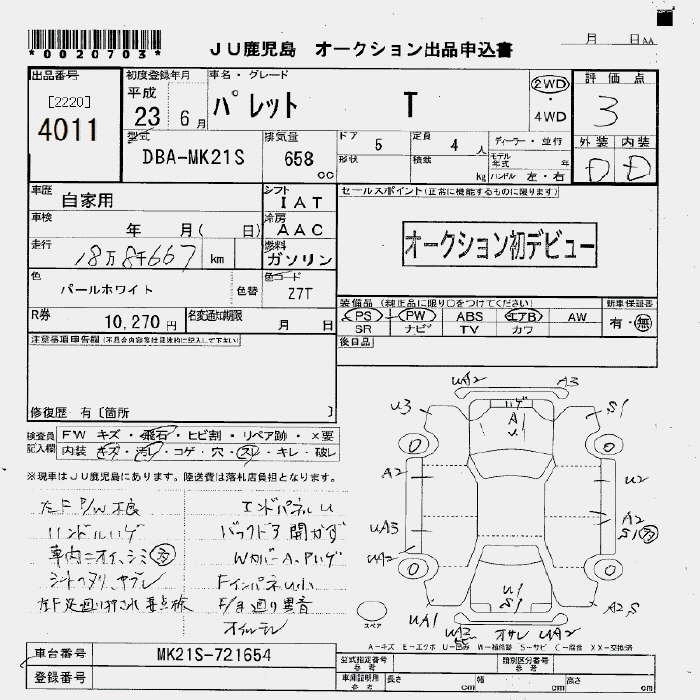 *0020703*
JU鹿児島 オークション出品申込書
月 日
出品番号
[2220]
4011
初度登録年月
平成
23 6月
車名・グレード
パレット T
2WD
・
4WD
評価点
3
型式
DBA-MK21S
排気量
658
cc
ドア
5
形状
定員
4 人
積載
kg
ディーラー・並行
モデル
年式 年
ハンドル 左・右
外装 内装
D D
車歴
自家用
シフト
IAT
セールスポイント(正常に機能するものに限ります)
オークション初デビュー
車検
年 月( 日)
冷房
AAC
走行
18万8千667 km
燃料
ガソリン
色
パールホワイト
色替
色コード
Z7T
装備品(純正品に限り○をつけてください)
PS PW ABS エアB AW
SR ナビ TV カワ
新車保証書
有・無
R券
10,270円
名変通知期限
月 日
後日品
注意事項申告欄(不具合内容等は具体的に記入して下さい)
修復歴 有〔箇所 〕
検査員
記入欄
FW キズ・飛石・ヒビ割・リペア跡・×要
内装 キズ・汚レ・コゲ・穴・スレ・キレ・破レ
※現車はJU鹿児島にあります。陸送費は落札店負担となります。
左F P/W不良
ハンドルハゲ
車内ニオイ、シミ 多
シートヘタリ、ヤブレ
エンドパネルU
バックドア開かず
Wカバー A、Pハゲ
FインパネU小
F/ま廻り異音
オイルモレ
UA2 A3
U3 S1
ハゲ
A
U
A2 U2
UA3 A2
S1 多
UA2
U1
S1
UA1 A2S
UA3 オサレ UA2
スペア
A-キズ E-エクボ U-凹み W-補修跡 S-サビ C-腐食 XX-交換済
車台番号
MK21S-721654
登録番号
型式指定番号
参考
類別区分番号
参考
車庫証明用
参考
長さ cm
幅 cm
高さ cm